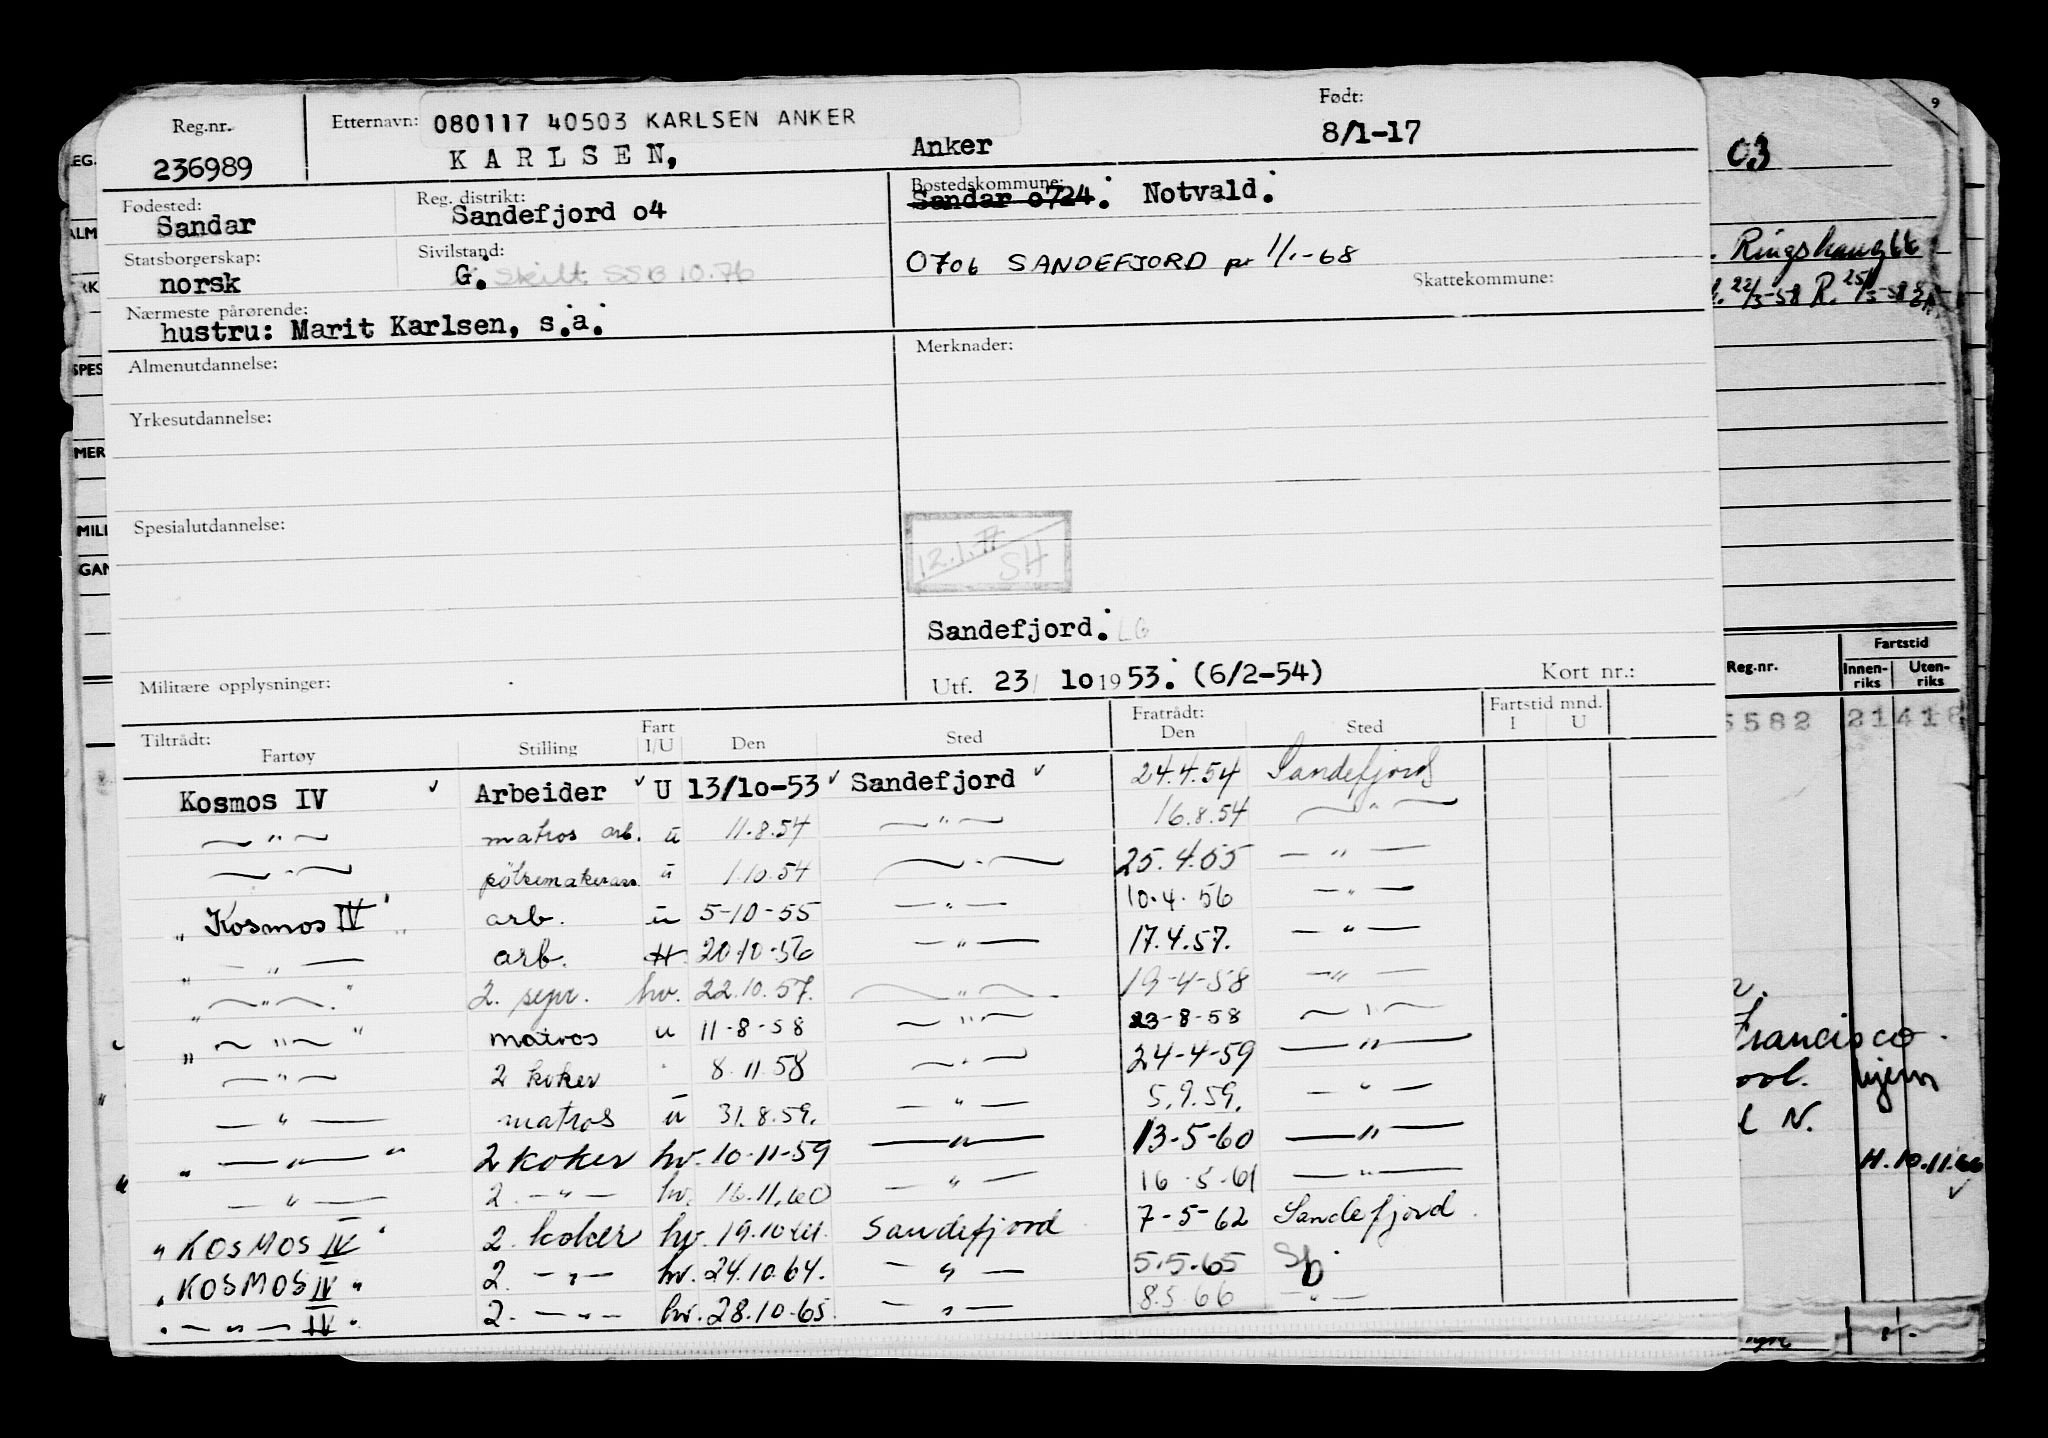 Reg.nr. Etternavn: 080117 40503 KARLSEN ANKER Født:
236989 KARLSEN, Anker 8/1-17
Fødested: Reg. distrikt: Bostedskommune:
Sandar Sandefjord o4 Sandar o724. Notvald.
Statsborgerskap: Sivilstand:
norsk G. Skilt SSB 10.76 0706 SANDEFJORD pr 1/1-68
Skattekommune:
Nærmeste pårørende:
hustru: Marit Karlsen, s.a.
Almenutdannelse: Merknader:
Yrkesutdannelse:
Spesialutdannelse:
12.1.77 SH
Sandefjord. LG
Militære opplysninger: Utf. 23/ 10 1953. (6/2-54) Kort nr.:
Tiltrådt: Fratrådt: Fartstid mnd.
Fartøy Stilling Fart I/U Den Sted Den Sted I U
Kosmos IV Arbeider U 13/10-53 Sandefjord 24.4.54 Sandefjord
— " — matros arb. u 11.8.54 — " — 16.8.54 — " —
— " — u 1.10.54 — " — 25.4.55 — " —
" Kosmos IV " arb. u 5-10-55 — " — 10.4.56 — " —
" — " — arb. 20.10.56 — " — 17.4.57. — " —
" — " — " 2. sepr. hv. 22.10.57. — " — 19-4-58 — " —
" — " — " matros u 11-8-58 — " — 23-8-58 — " —
— " — 2 koker " 8.11.58 — " — 24-4-59 — " —
— " — matros u 31.8.59. — " — 5.9.59. — " —
" — " — " 2 koker hv. 10-11-59 — " — 13-5-60 — " —
— " — 2. — " — hv. 16.11.60 — " — 16.5-61 — " —
" KOSMOS IV " 2. koker hv. 19.10.61. Sandefjord 7-5-62 Sandefjord.
" KOSMOS IV " 2. — " — hv. 24.10.64. — " — 5.5.65 Sfj.
" — " — IV " 2. — " — hv. 28.10-65. — " — 8.5.66 — " —
9
03
Ringshaug 66
22/3-58 R. 25/3-58
Fartstid
Reg.nr. Innen-riks Uten-riks
5582 21418
Francisco
hjem
N.
H. 10.11.66
EG.
ALM
RK
SPES
MER
MILI
GAN